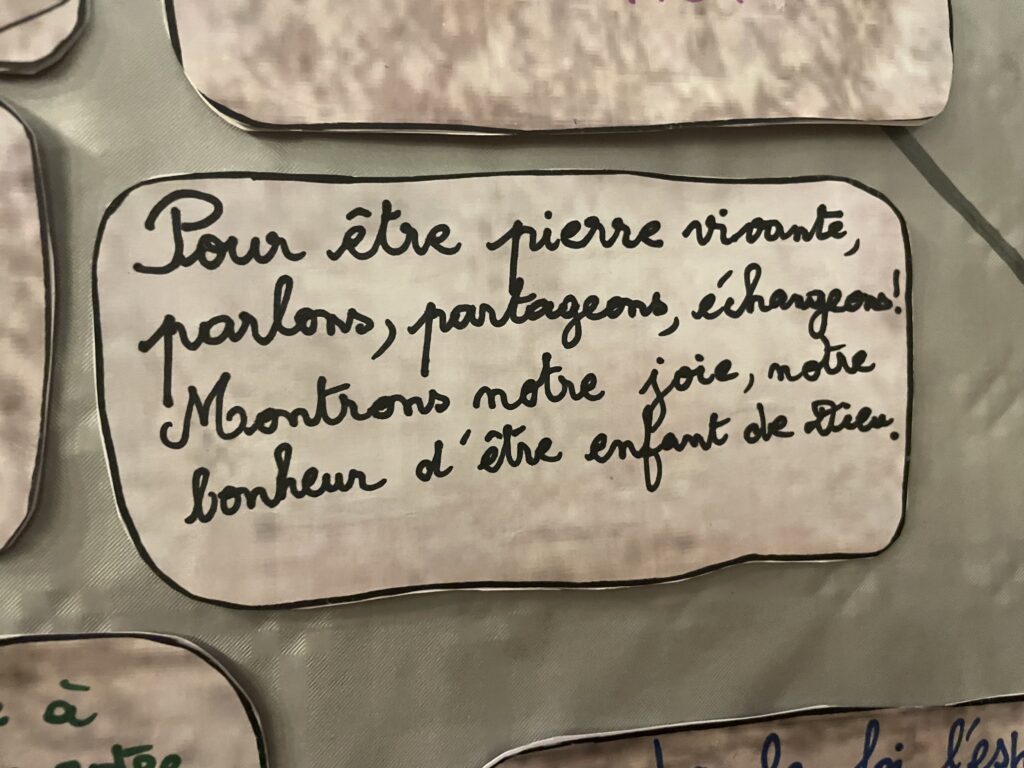 Pour être pierre vivante,
parlons, partageons, échangeons!
Montrons notre joie, notre
bonheur d'être enfant de Dieu.
à